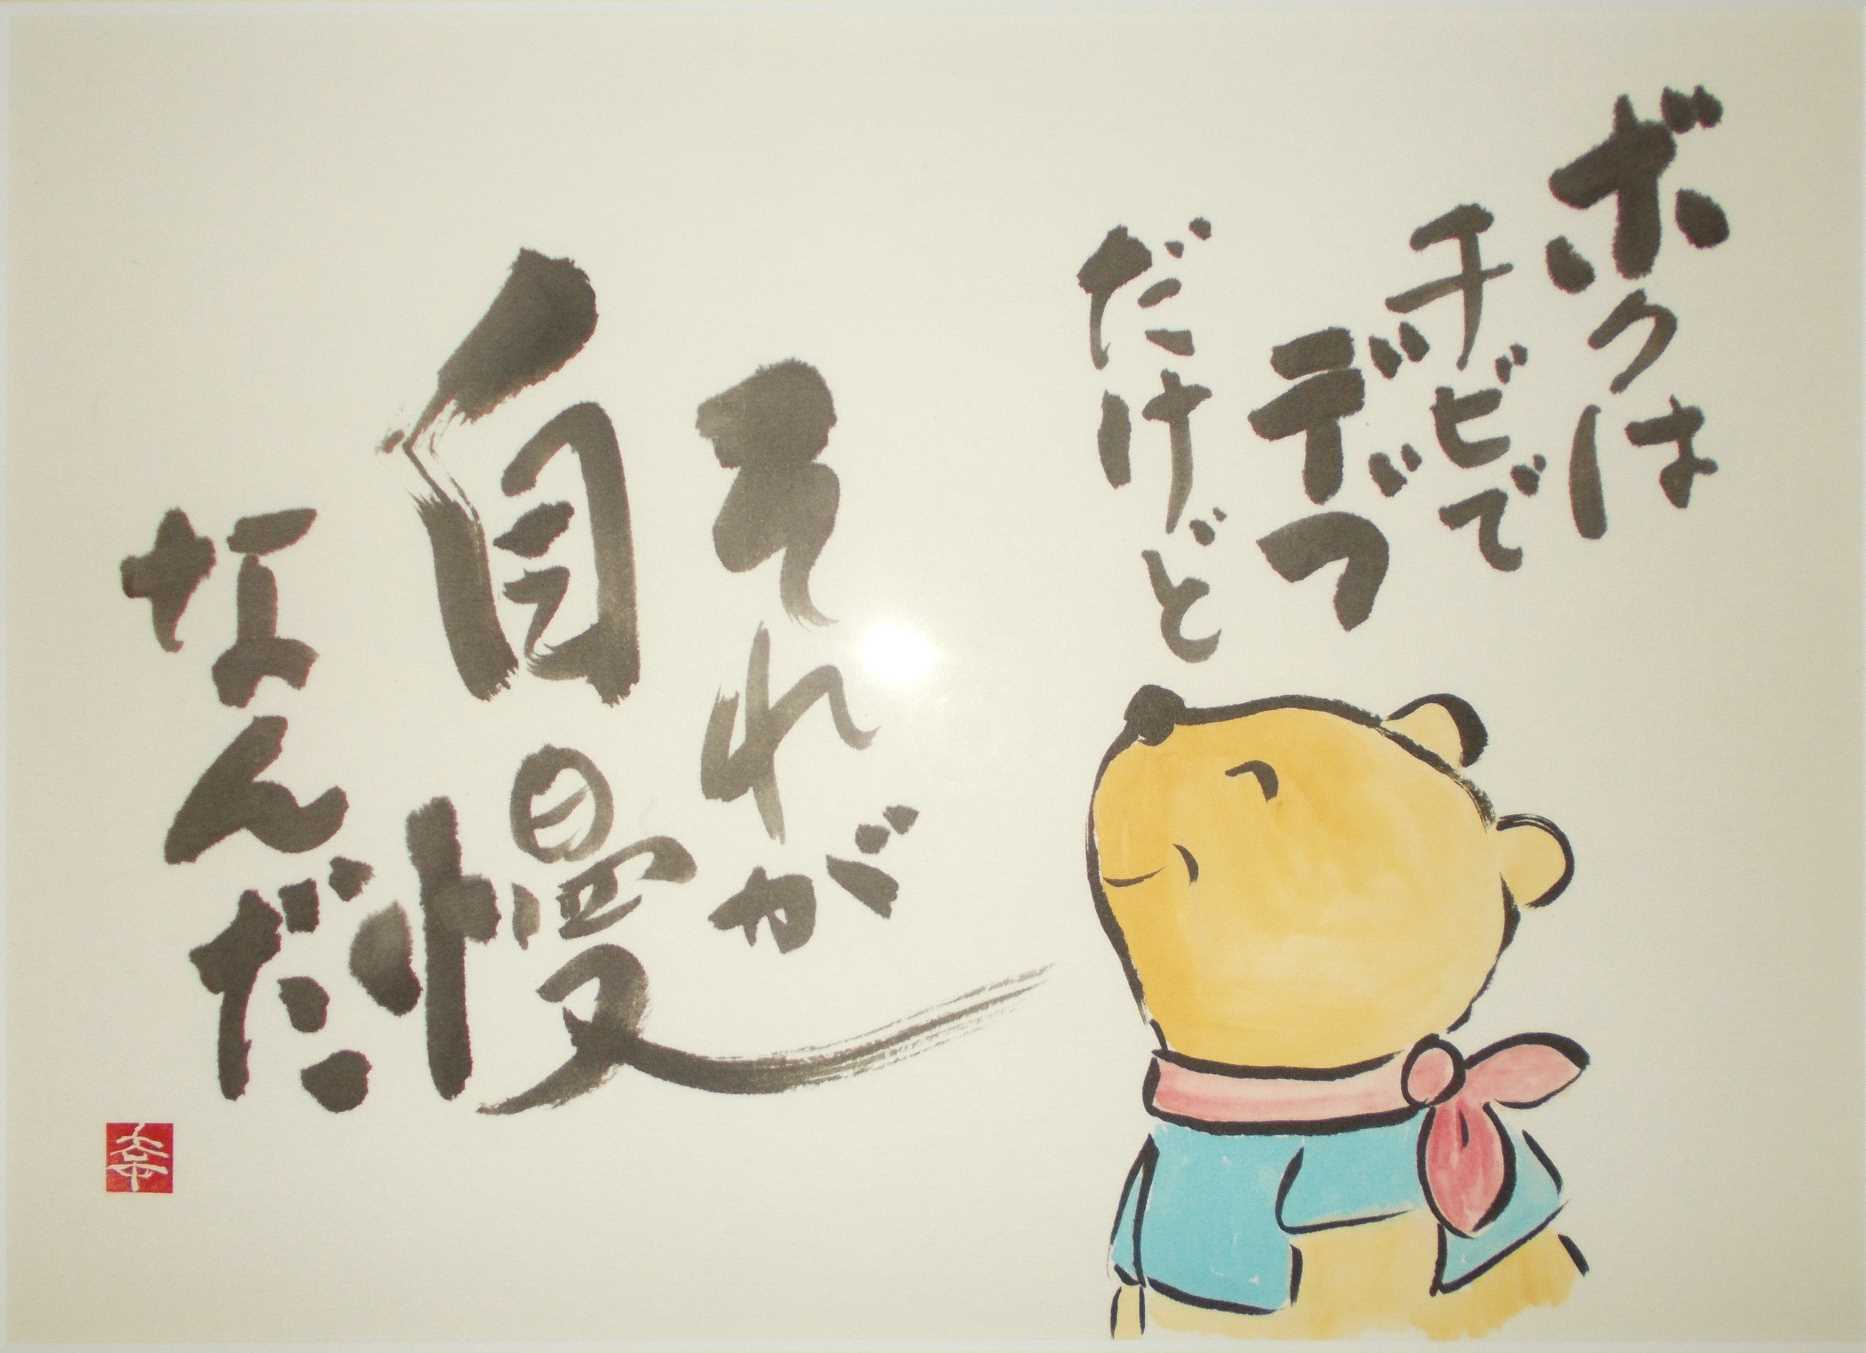 ボクは
チビで
デブ
だけど
それが
自慢
なんだ
幸